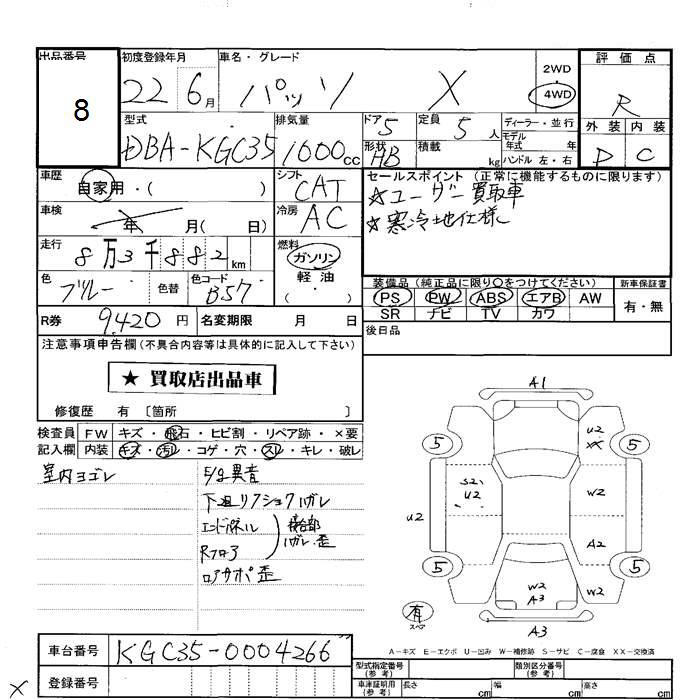 出品番号 8
初度登録年月 22 6月
車名・グレード パッソ X
2WD 4WD
評価点 R
外装 D 内装 C
型式 DBA-KGC35
排気量 1000cc
ドア 5
形状 HB
定員 5人
積載 kg
ディーラー・並行
モデル年式 年
ハンドル 左・右
車歴 自家用・( )
シフト CAT
セールスポイント (正常に機能するものに限ります)
☆ユーザー買取車
☆寒冷地仕様
車検 年 月( 日)
冷房 AC
走行 8万3千882km
燃料 ガソリン 軽油 ・( )
色 ブルー 色替
色コード B57
装備品 (純正品に限り○をつけてください) 新車保証書
PS PW ABS エアB AW
SR ナビ TV カワ
有・無
R券 9,420円
名変期限 月 日
後日品
注意事項申告欄(不具合内容等は具体的に記入して下さい)
★ 買取店出品車
修復歴 有 〔箇所 〕
検査員記入欄
FW キズ・飛石・ヒビ割・リペア跡・×要
内装 キズ・汚レ・コゲ・穴・スレ・キレ・破レ
室内ヨゴレ
異音
歪
A1
U2
5 5
S2 U2
W2
U2
A2
5 5
W2 A3
W2
有 スペア
A3
A-キズ E-エクボ U-凹み W-補修跡 S-サビ C-腐食 XX-交換済
車台番号 KGC35-0004266
登録番号
型式指定番号(参考) 類別区分番号(参考)
車庫証明用(参考) 長さ cm 幅 cm 高さ cm